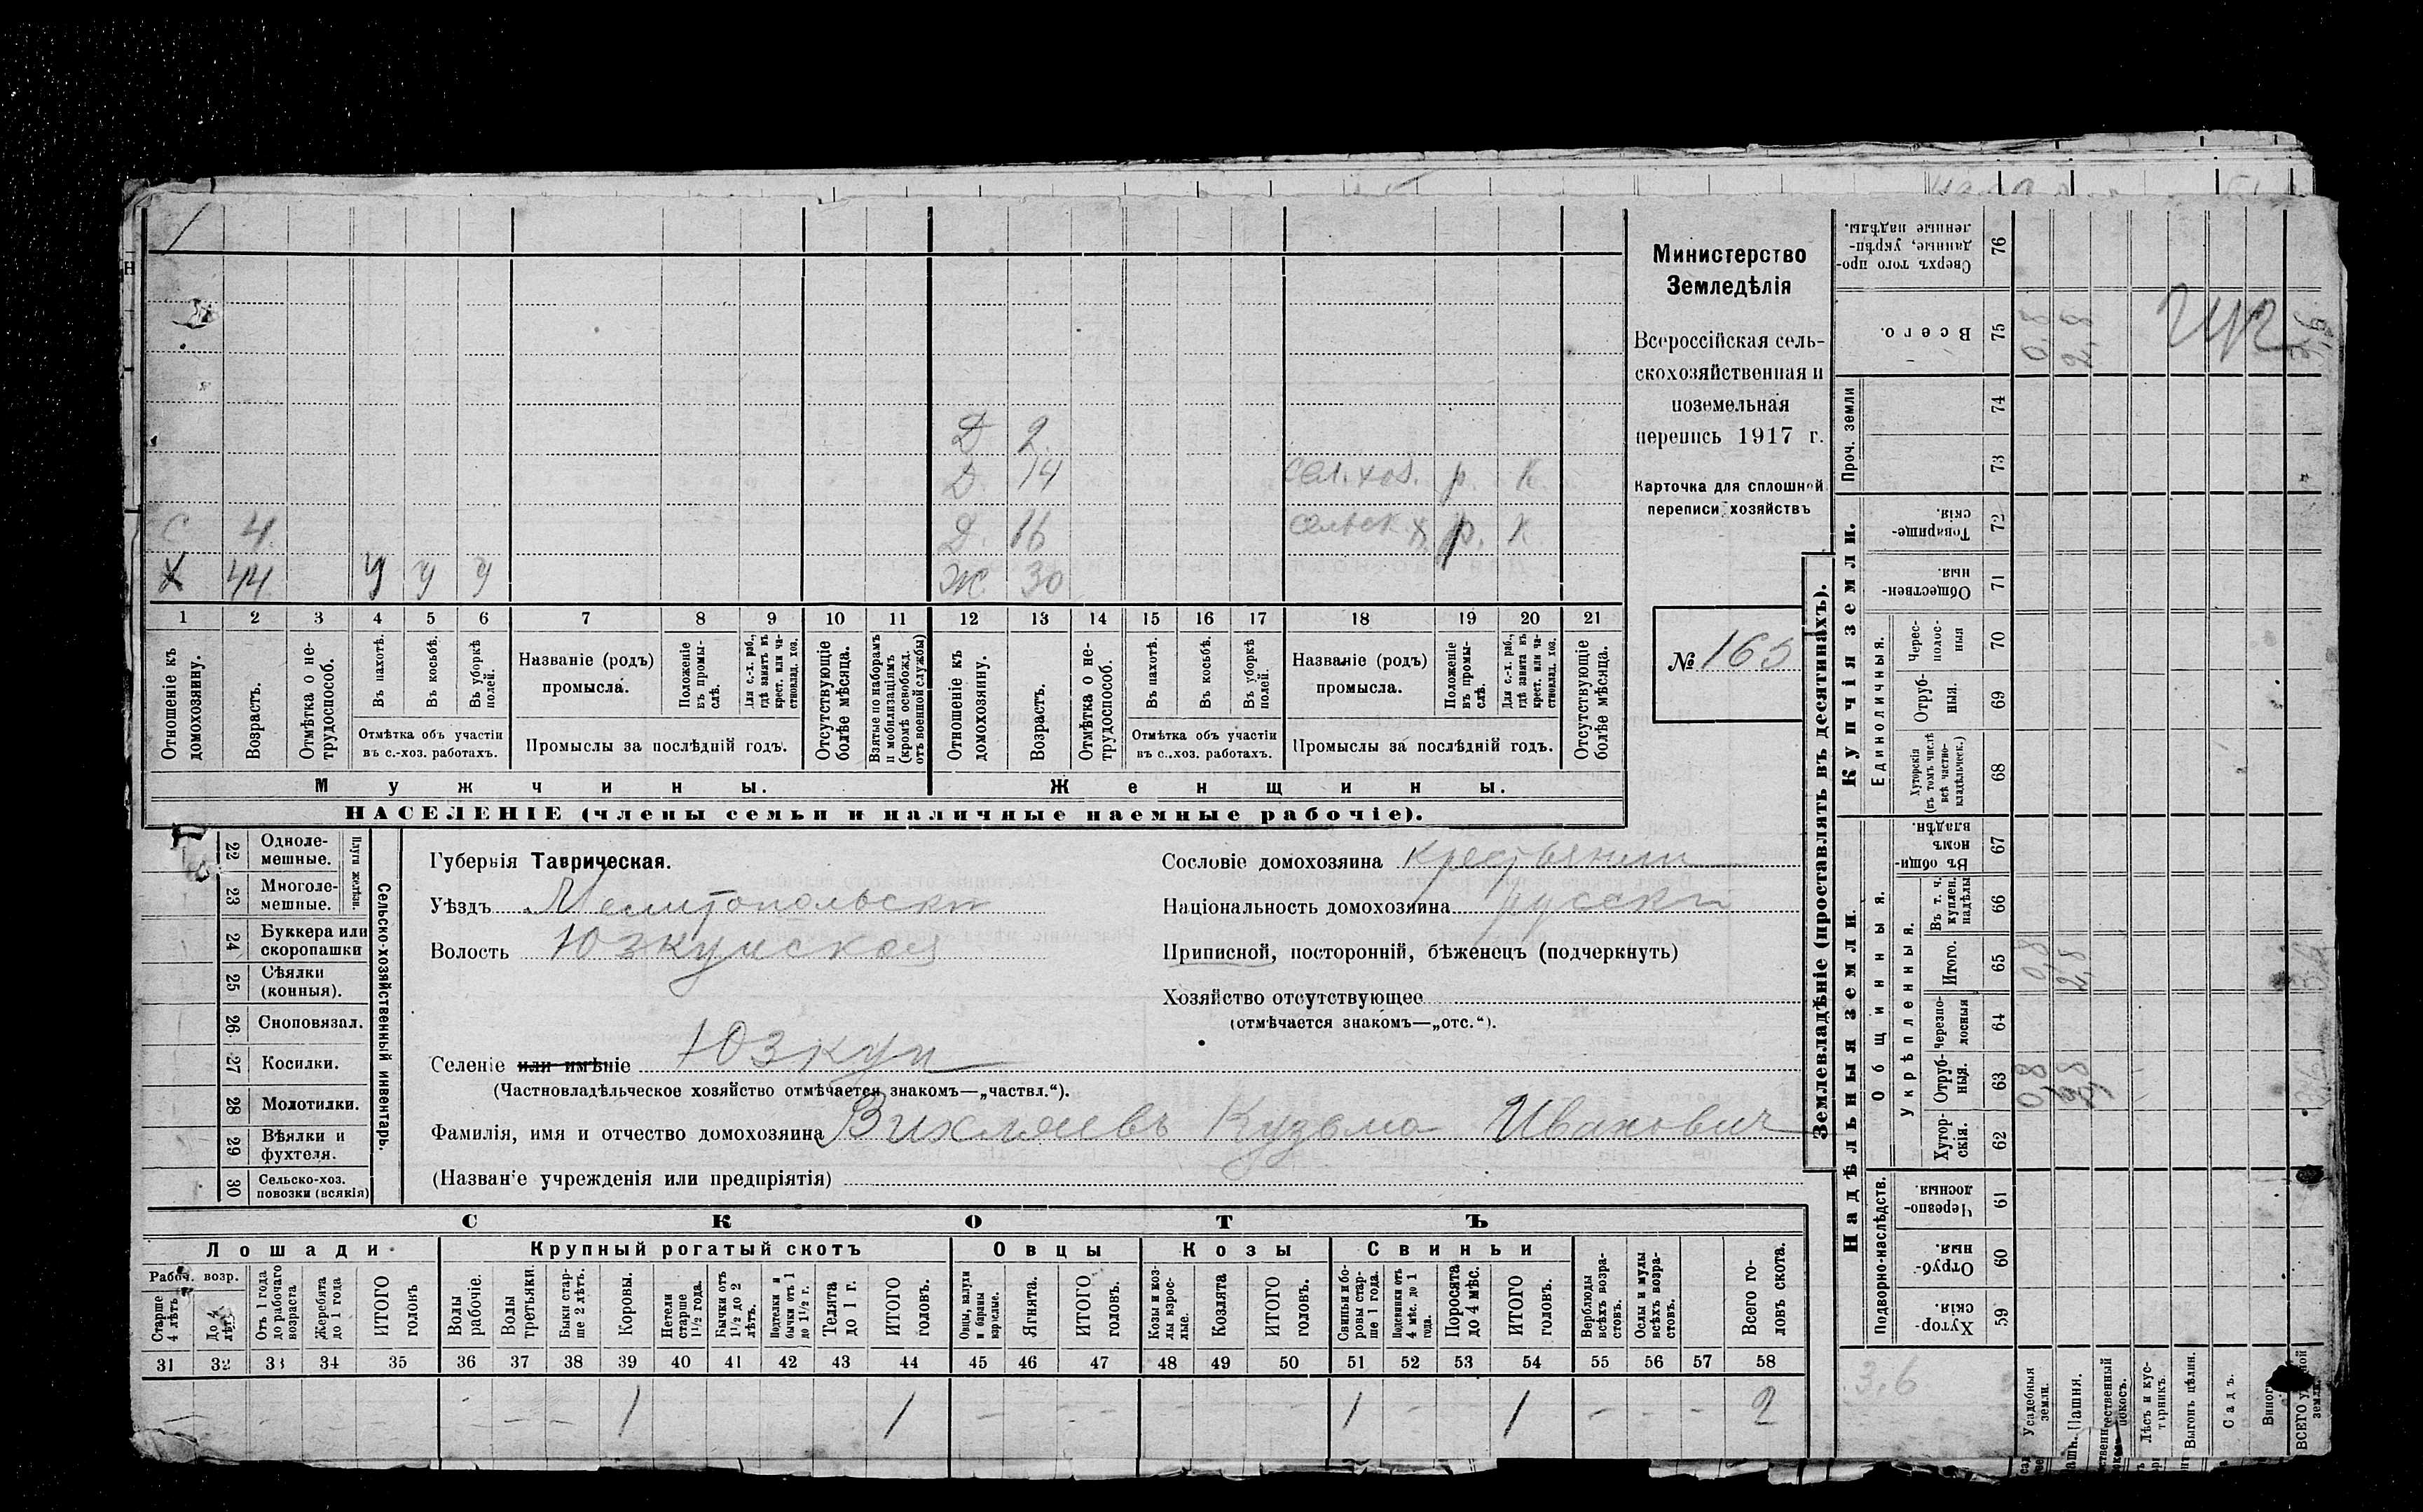 Д 2
Д 14 сел. хоз. р. К
С 4 Д. 16 сельск. х. р. К
Х 44 у у у Ж 30
1 2 3 4 5 6 7 8 9 10 11 12 13 14 15 16 17 18 19 20 21
Отношеніе къ домохозяину.
Возрастъ.
Отмѣтка о не-трудоспособ.
Въ пахотѣ.
Въ косьбѣ.
Въ уборкѣ полей.
Отмѣтка объ участіи
въ с.-хоз. работахъ.
Названіе (родъ)
промысла.
Положеніе въ промы-слѣ.
Для с.-х. раб., гдѣ занятъ въ крест. или ча-стновлад. хоз.
Промыслы за послѣдній годъ.
Отсутствующіе болѣе мѣсяца.
Взятые по наборамъ и мобилизаціямъ (кромѣ освобожд. отъ военной службы)
Отношеніе къ домохозяину.
Возрастъ.
Отмѣтка о не-трудоспособ.
Въ пахотѣ.
Въ косьбѣ.
Въ уборкѣ полей.
Отмѣтка объ участіи
въ с.-хоз. работахъ.
Названіе (родъ)
промысла.
Положеніе въ промы-слѣ.
Для с.-х. раб., гдѣ занята въ крест. или ча-стновлад. хоз.
Промыслы за послѣдній годъ.
Отсутствующіе болѣе мѣсяца.
Мужчины. Женщины.
НАСЕЛЕНІЕ (члены семьи и наличные наемные рабочіе).
Министерство
Земледѣлія
Всероссійская сель-
скохозяйственная и
поземельная
перепись 1917 г.
Карточка для сплошной
переписи хозяйствъ
№ 165
22 Одноле-мешные.
23 Многоле-мешные.
Плуги желѣзн.
24 Буккера или скоропашки
25 Сѣялки (конныя).
26 Сноповязал.
27 Косилки.
28 Молотилки.
29 Вѣялки и фухтеля.
30 Сельско-хоз. повозки (всякія)
Сельско-хозяйственный инвентарь.
Губернія Таврическая.
Уѣздъ Мелитопольскій
Волость Юзкуйская
Селеніе или имѣніе Юзкуи
(Частновладѣльческое хозяйство отмѣчается знакомъ—„частвл.“).
Фамилія, имя и отчество домохозяина Вихляевъ Кузьма Иванович
(Названіе учрежденія или предпріятія)
Сословіе домохозяина крестьянин
Національность домохозяина русскій
Приписной, посторонній, бѣженецъ (подчеркнуть)
Хозяйство отсутствующее
(отмѣчается знакомъ—„отс.“).
СКОТЪ
Лошади Крупный рогатый скотъ Овцы Козы Свиньи
Рабоч. возр.
Старше 4 лѣтъ
До 4 лѣтъ
Отъ 1 года до рабочаго возраста
Жеребята до 1 года
ИТОГО головъ
Волы рабочіе.
Волы третьяки.
Быки стар-ше 2 лѣтъ.
Коровы.
Нетели старше 1½ года.
Бычки отъ 1½ до 2 лѣтъ.
Подтелки и бычки отъ 1 до 1½ г.
Телята до 1 г.
ИТОГО головъ.
Овцы, валухи и бараны взрослые.
Ягнята.
ИТОГО головъ.
Козы и коз-лы взрос-лые.
Козлята
ИТОГО головъ.
Свиньи и бо-ровы стар-ше 1 года.
Подсвинки отъ 4 мѣс. до 1 года.
Поросята до 4 мѣс.
ИТОГО головъ.
Верблюды всѣхъ возра-стовъ.
Ослы и мулы всѣхъ возра-стовъ.
Всего го-ловъ скота.
31 32 33 34 35 36 37 38 39 40 41 42 43 44 45 46 47 48 49 50 51 52 53 54 55 56 57 58
- - - 1 1 - - - - - - 1 - 1 - - - 2
Землевладѣніе (проставлять въ десятинахъ).
Надѣльныя земли. Купчія земли.
Подворно-наслѣдств.
Общинныя.
Укрѣпленныя.
Единоличныя.
Проч. земли
Сверхъ того про-данные, укрѣп-ленные надѣлы. 76
Всего. 75 0,8 2,8 3,6
74
73
Товарище-скія. 72
Обществен-ныя. 71
Черес-полос-ныя 70
Отруб-ныя. 69
Хуторскія (въ томъ числѣ всѣ частно-владѣльческ.) 68
Въ общин-номъ владѣн. 67
Въ т. ч. куплен. надѣлы 66
Итого. 65 0,8 2,8
Черезпо-лосныя 64
Отруб-ныя. 63 0,8 2,8
Хутор-скія. 62
Черезпо-лосныя 61
Отруб-ныя. 60
Хутор-скія. 59
3,6
Усадебныя земли.
Пашня.
Лѣсъ и кус-тарникъ.
Выгонъ цѣлин.
Садъ.